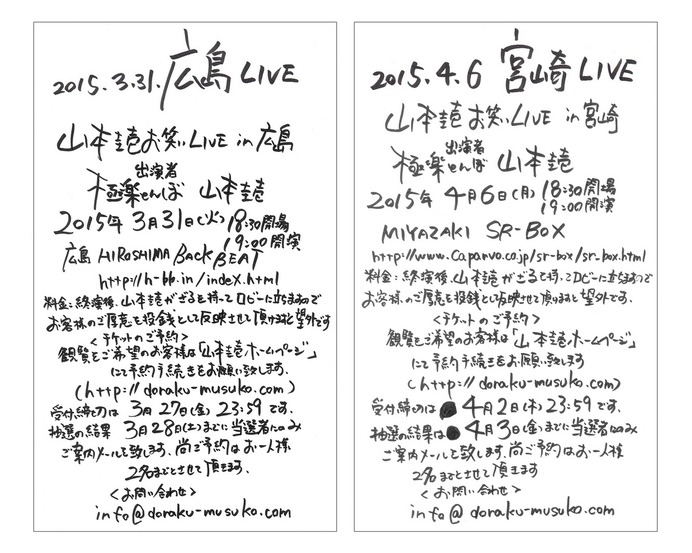 2015.3.31. 広島 LIVE
山本圭壱お笑いLIVE in 広島
出演者
極楽とんぼ 山本圭壱
2015年3月31日(火) 18:30開場
19:00開演
広島 HIROSHIMA BACK BEAT
http://h-bb.in/index.html
料金:終演後、山本圭壱がざるを持ってロビーに立ちますので
お客様のご厚意を投銭として反映させて頂けますと望外です
<チケットのご予約>
観覧をご希望のお客様は「山本圭壱ホームページ」
にて予約手続きをお願い致します。
(http://doraku-musuko.com)
受付締切は 3月27日(金) 23:59 です。
抽選の結果 3月28日(土)までに当選者にのみ
ご案内メールで致します。尚ご予約はお一人様
2名までとさせて頂きます。
<お問い合わせ>
info@doraku-musuko.com
2015.4.6 宮崎 LIVE
山本圭壱お笑いLIVE in 宮崎
出演者
極楽とんぼ 山本圭壱
2015年 4月6日(月) 18:30開場
19:00開演
MIYAZAKI SR-BOX
http://www.caparvo.co.jp/sr-box/sr-box.html
料金:終演後、山本圭壱がざるを持ってロビーに立ちますので
お客様のご厚意を投銭として反映させて頂けますと望外です。
<チケットのご予約>
観覧をご希望のお客様は「山本圭壱ホームページ」
にて予約手続きをお願い致します
(http://doraku-musuko.com)
受付締切は 4月2日(木) 23:59 です。
抽選の結果は 4月3日(金)までに当選者にのみ
ご案内メールで致します。尚ご予約はお一人様
2名までとさせて頂きます
<お問い合わせ>
info@doraku-musuko.com